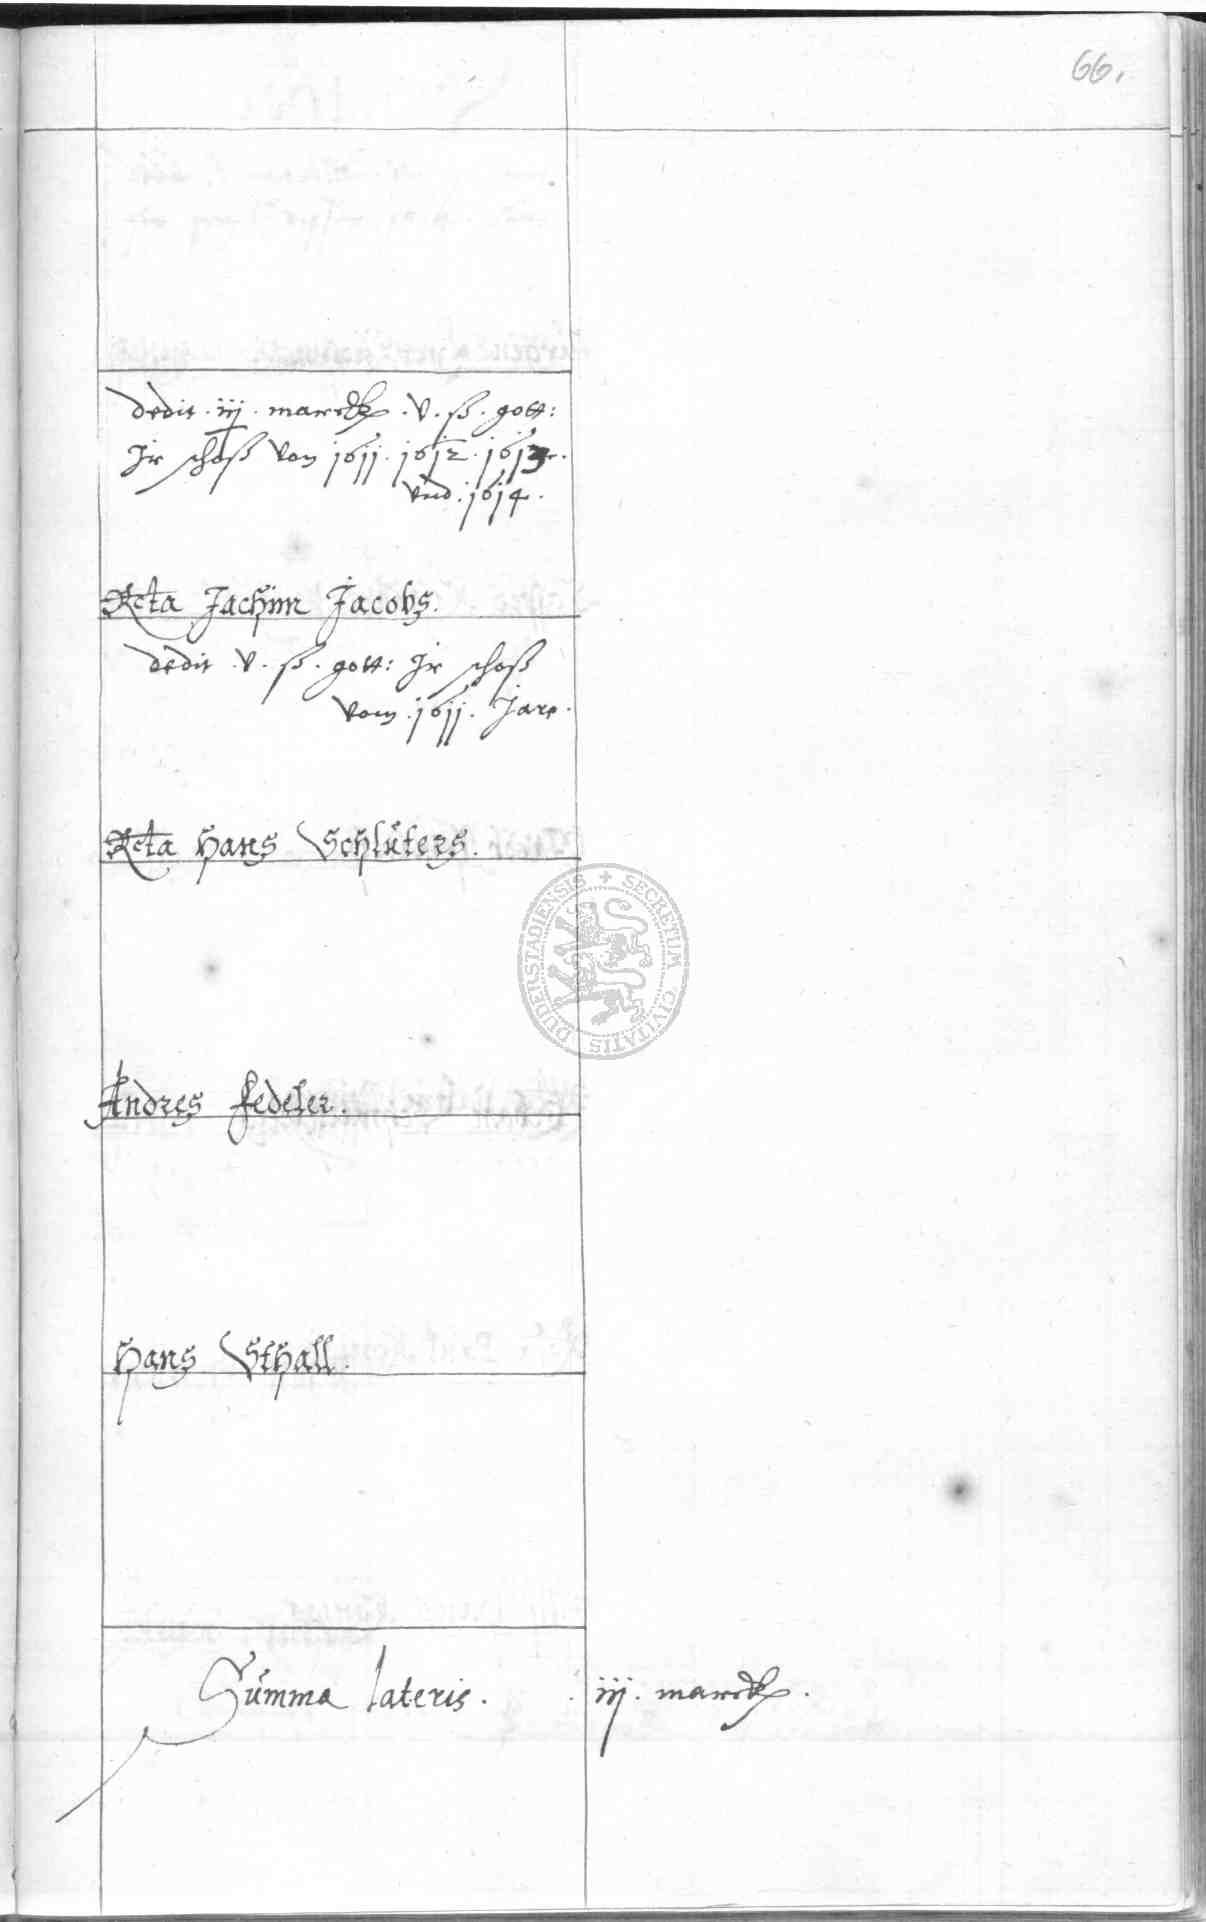 66.
dedit . iij . marck . v . ß . gott:
Ir schoß von 1611 . 1612 . 1613 .
vnd . 1614 .
Rcta Jachim Jacobs.
dedit . v . ß . gott: Ir schoß
vom . 1611 . Jare .
Rcta Hans Schlüters.
SECRETUM CIVITATIS DUDERSTADIENSIS
Andres fedeler.
Hans Sthall.
Summa lateris . iij . marck .